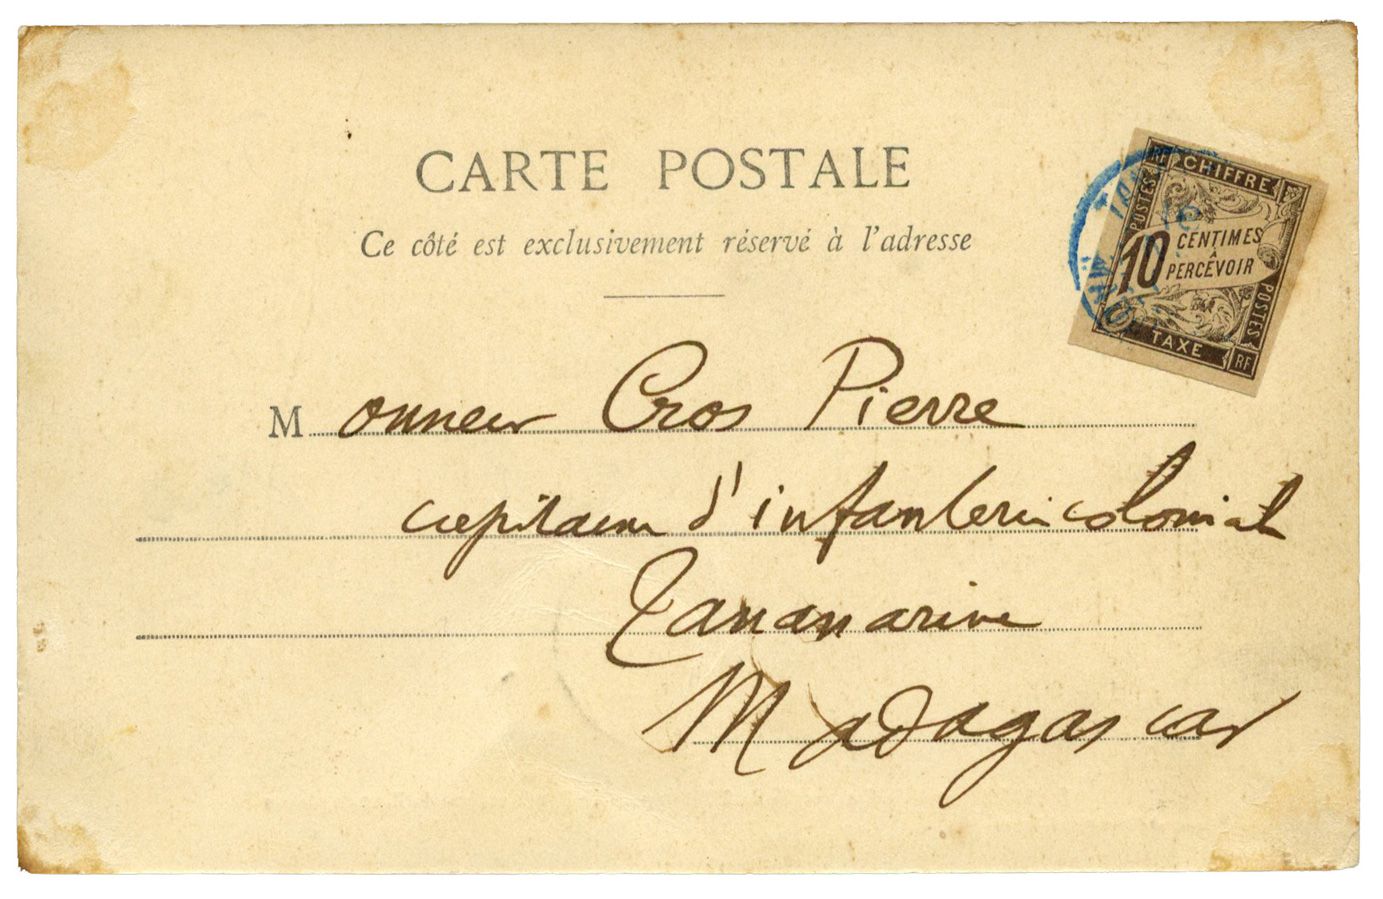 CARTE POSTALE
Ce côté est exclusivement réservé à l'adresse
RF CHIFFRE
POSTES
10 CENTIMES
À
PERCEVOIR
POSTES
TAXE RF
Monsieur Cros Pierre
capitaine d'infanterie coloniale
Tananarive
Madagascar